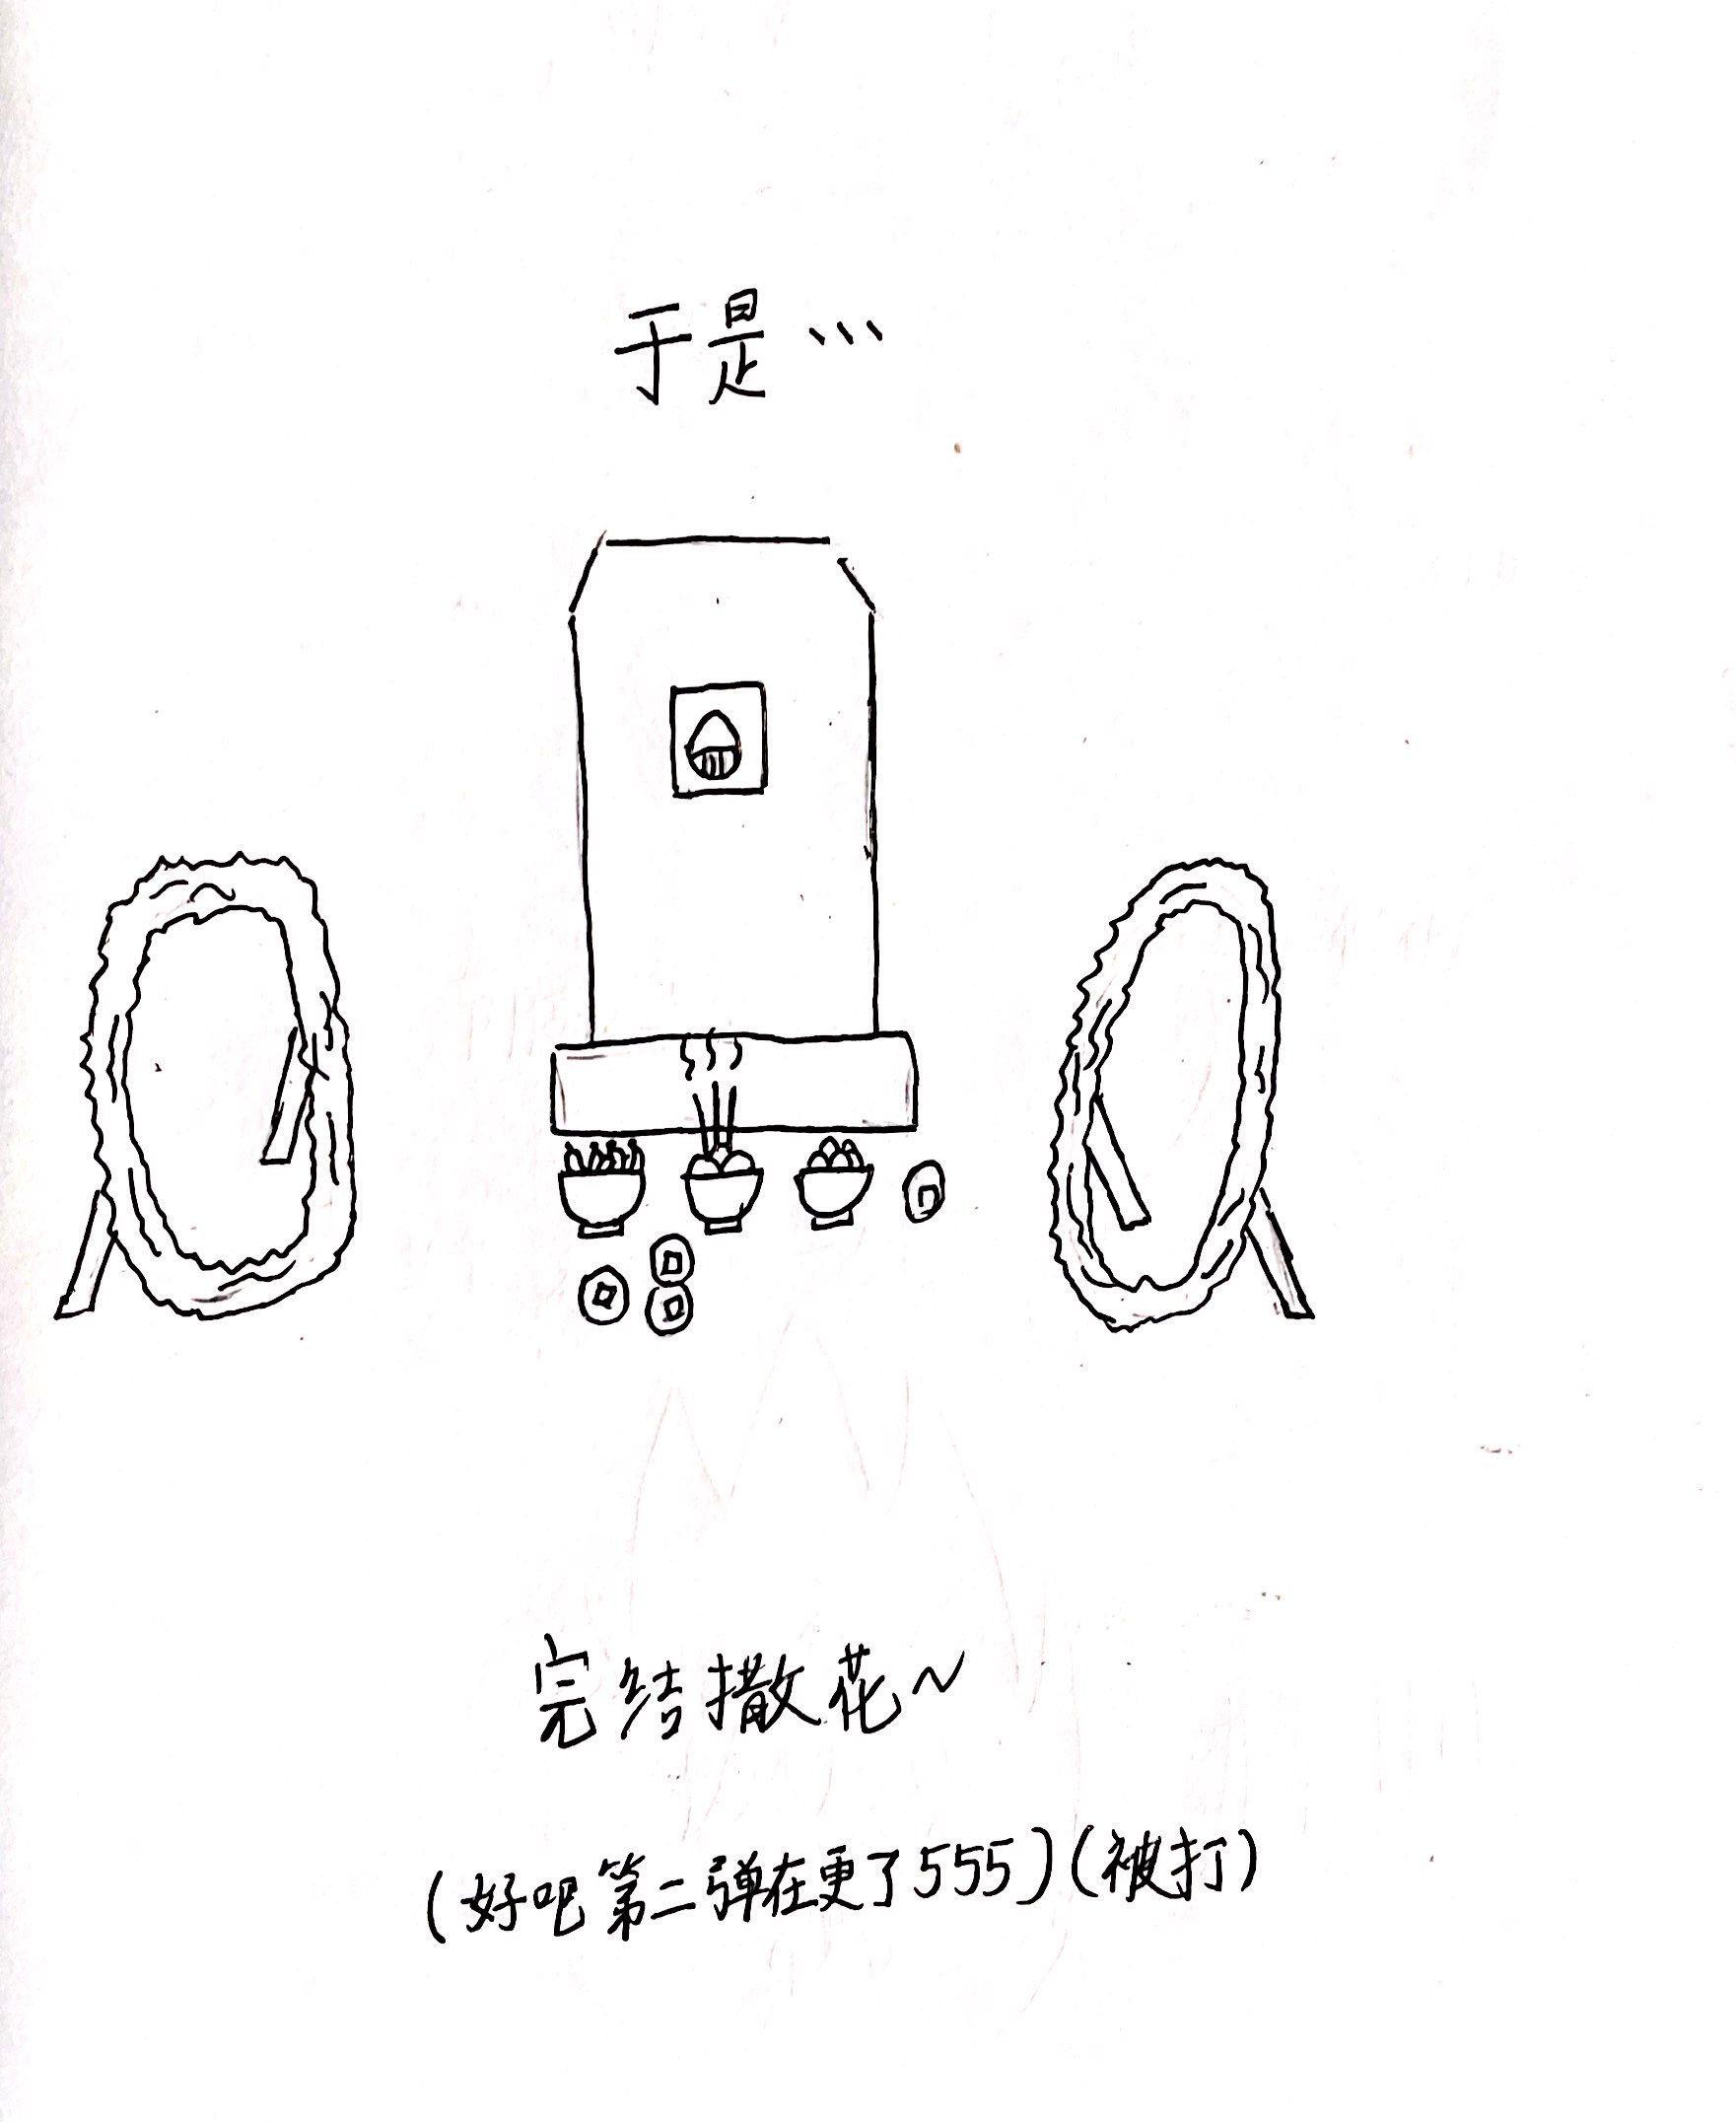 于是…
完结撒花~
(好吧第二弹在更了555)(被打)